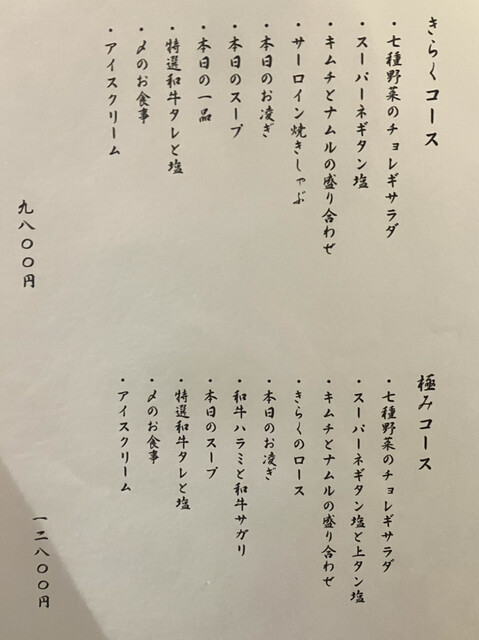 きらくコース
・七種野菜のチョレギサラダ
・スーパーネギタン塩
・キムチとナムルの盛り合わせ
・サーロイン焼きしゃぶ
・本日のお凌ぎ
・本日のスープ
・本日の一品
・特選和牛タレと塩
・〆のお食事
・アイスクリーム
九八〇〇円
極みコース
・七種野菜のチョレギサラダ
・スーパーネギタン塩と上タン塩
・キムチとナムルの盛り合わせ
・きらくのロース
・本日のお凌ぎ
・和牛ハラミと和牛サガリ
・本日のスープ
・特選和牛タレと塩
・〆のお食事
・アイスクリーム
一二八〇〇円